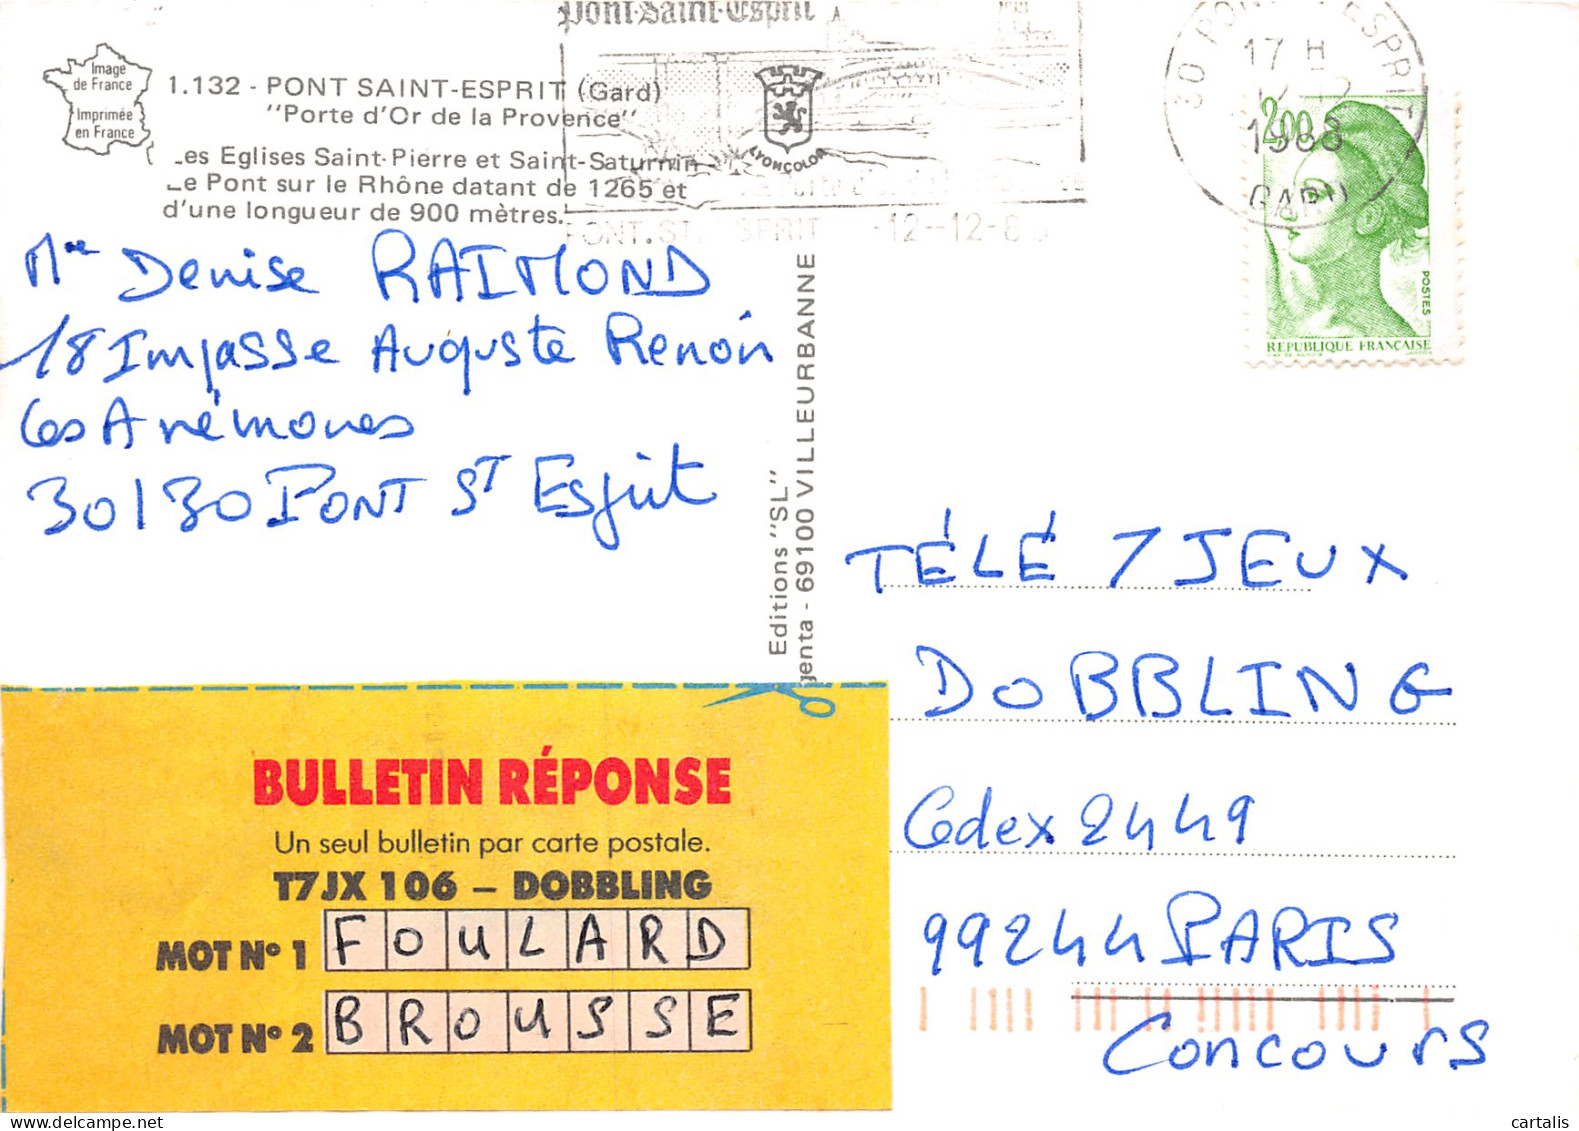 Pont-Saint-Esprit
Image
de France
Imprimée
en France
1.132 - PONT SAINT-ESPRIT (Gard)
"Porte d'Or de la Provence"
Les Eglises Saint-Pierre et Saint-Saturnin -
Le Pont sur le Rhône datant de 1265 et
d'une longueur de 900 mètres.
LYONCOLOR
PONT.ST. ESPRIT -12--12-8
17 H
1988
GARD
2,00
POSTES
REPUBLIQUE FRANÇAISE
Mme Denise RAIMOND
18 Impasse Auguste Renoir
Les Anémones
30130 PONT ST Esprit
Editions "SL"
genta - 69100 VILLEURBANNE
TÉLÉ 7 JEUX
DOBBLING
Cedex 2449
99244 PARIS
Concours
BULLETIN RÉPONSE
Un seul bulletin par carte postale.
T7JX 106 – DOBBLING
MOT N° 1 FOULARD
MOT N° 2 BROUSSE
cartalis